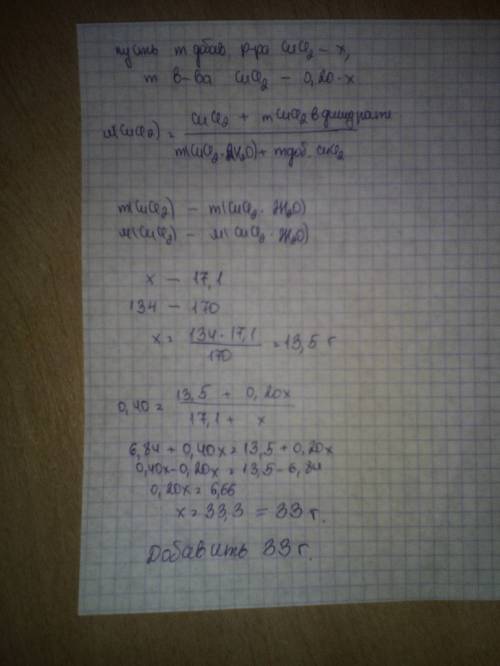 пусть m добав. р-ра CuCl₂ – x,
m в-ва CuCl₂ – 0,20·x
(CuCl₂) = CuCl₂ + mCuCl₂ в дигидрате / m(CuCl₂·2H₂O) + m доб. CuCl₂
m(CuCl₂) – m(CuCl₂·2H₂O)
M(CuCl₂) – M(CuCl₂·2H₂O)
x – 17,1
134 – 170
x = 134·17,1 / 170 = 13,5 г
0,40 = 13,5 + 0,20x / 17,1 + x
6,84 + 0,40x = 13,5 + 0,20x
0,40x – 0,20x = 13,5 – 6,84
0,20x = 6,66
x = 33,3 = 33 г.
Добавить 33 г.